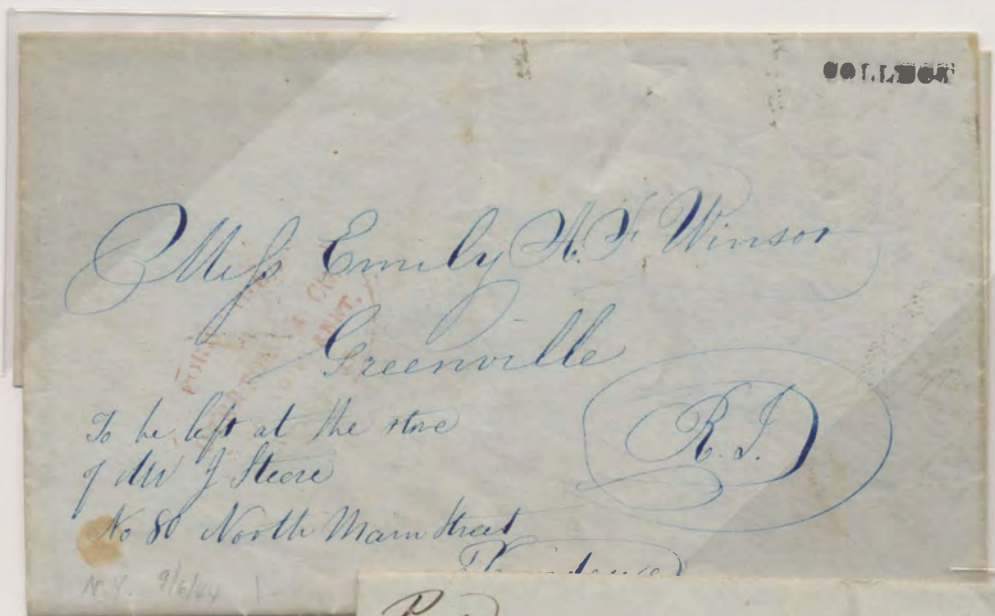 COLLECT
Miss Emily A. F. Winsor
Greenville
R. I.
To be left at the store
of Mr J Steere
No 80 North Main Street
Providence
N.Y. 9/6/44